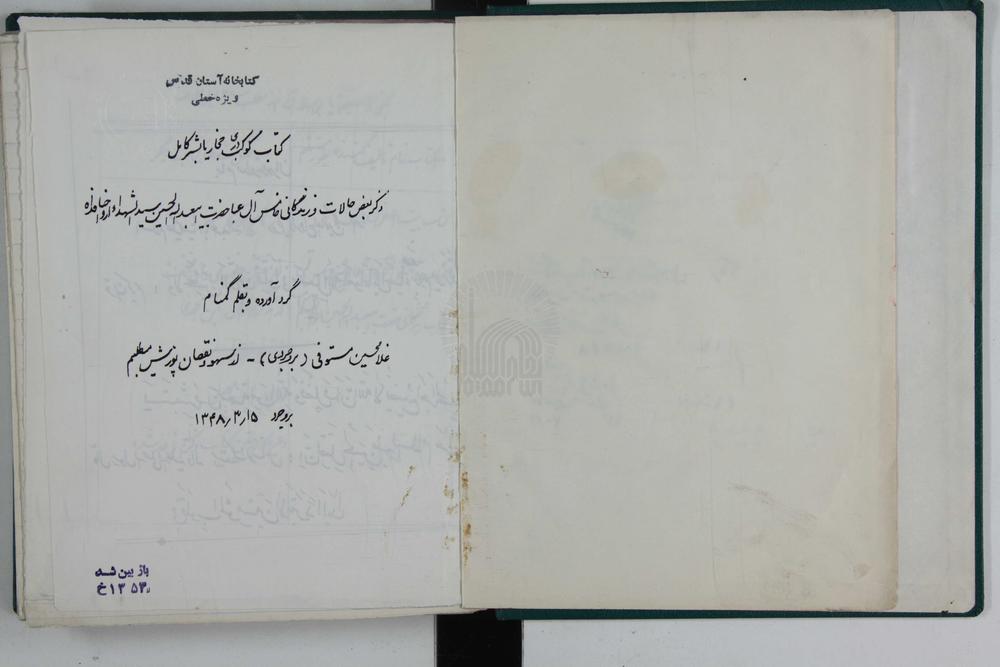 کتابخانه آستان قدس
ویژه خطی
کتاب کوکب دری حجاز یا بشر کامل
ذکر بعض حالات و زندگانی خامس آل عبا حضرت ابیعبدالله الحسین سیدالشهداء ارواحنا فداه
گرد آورده و بقلم گمنام
غلامحسین مستوفی (بروجردی) - از سهو و نقصان پوزش میطلبم
بروجرد ۱۳۴۸/۳/۱۵
باز بین شد
۱۳۵۳ خ